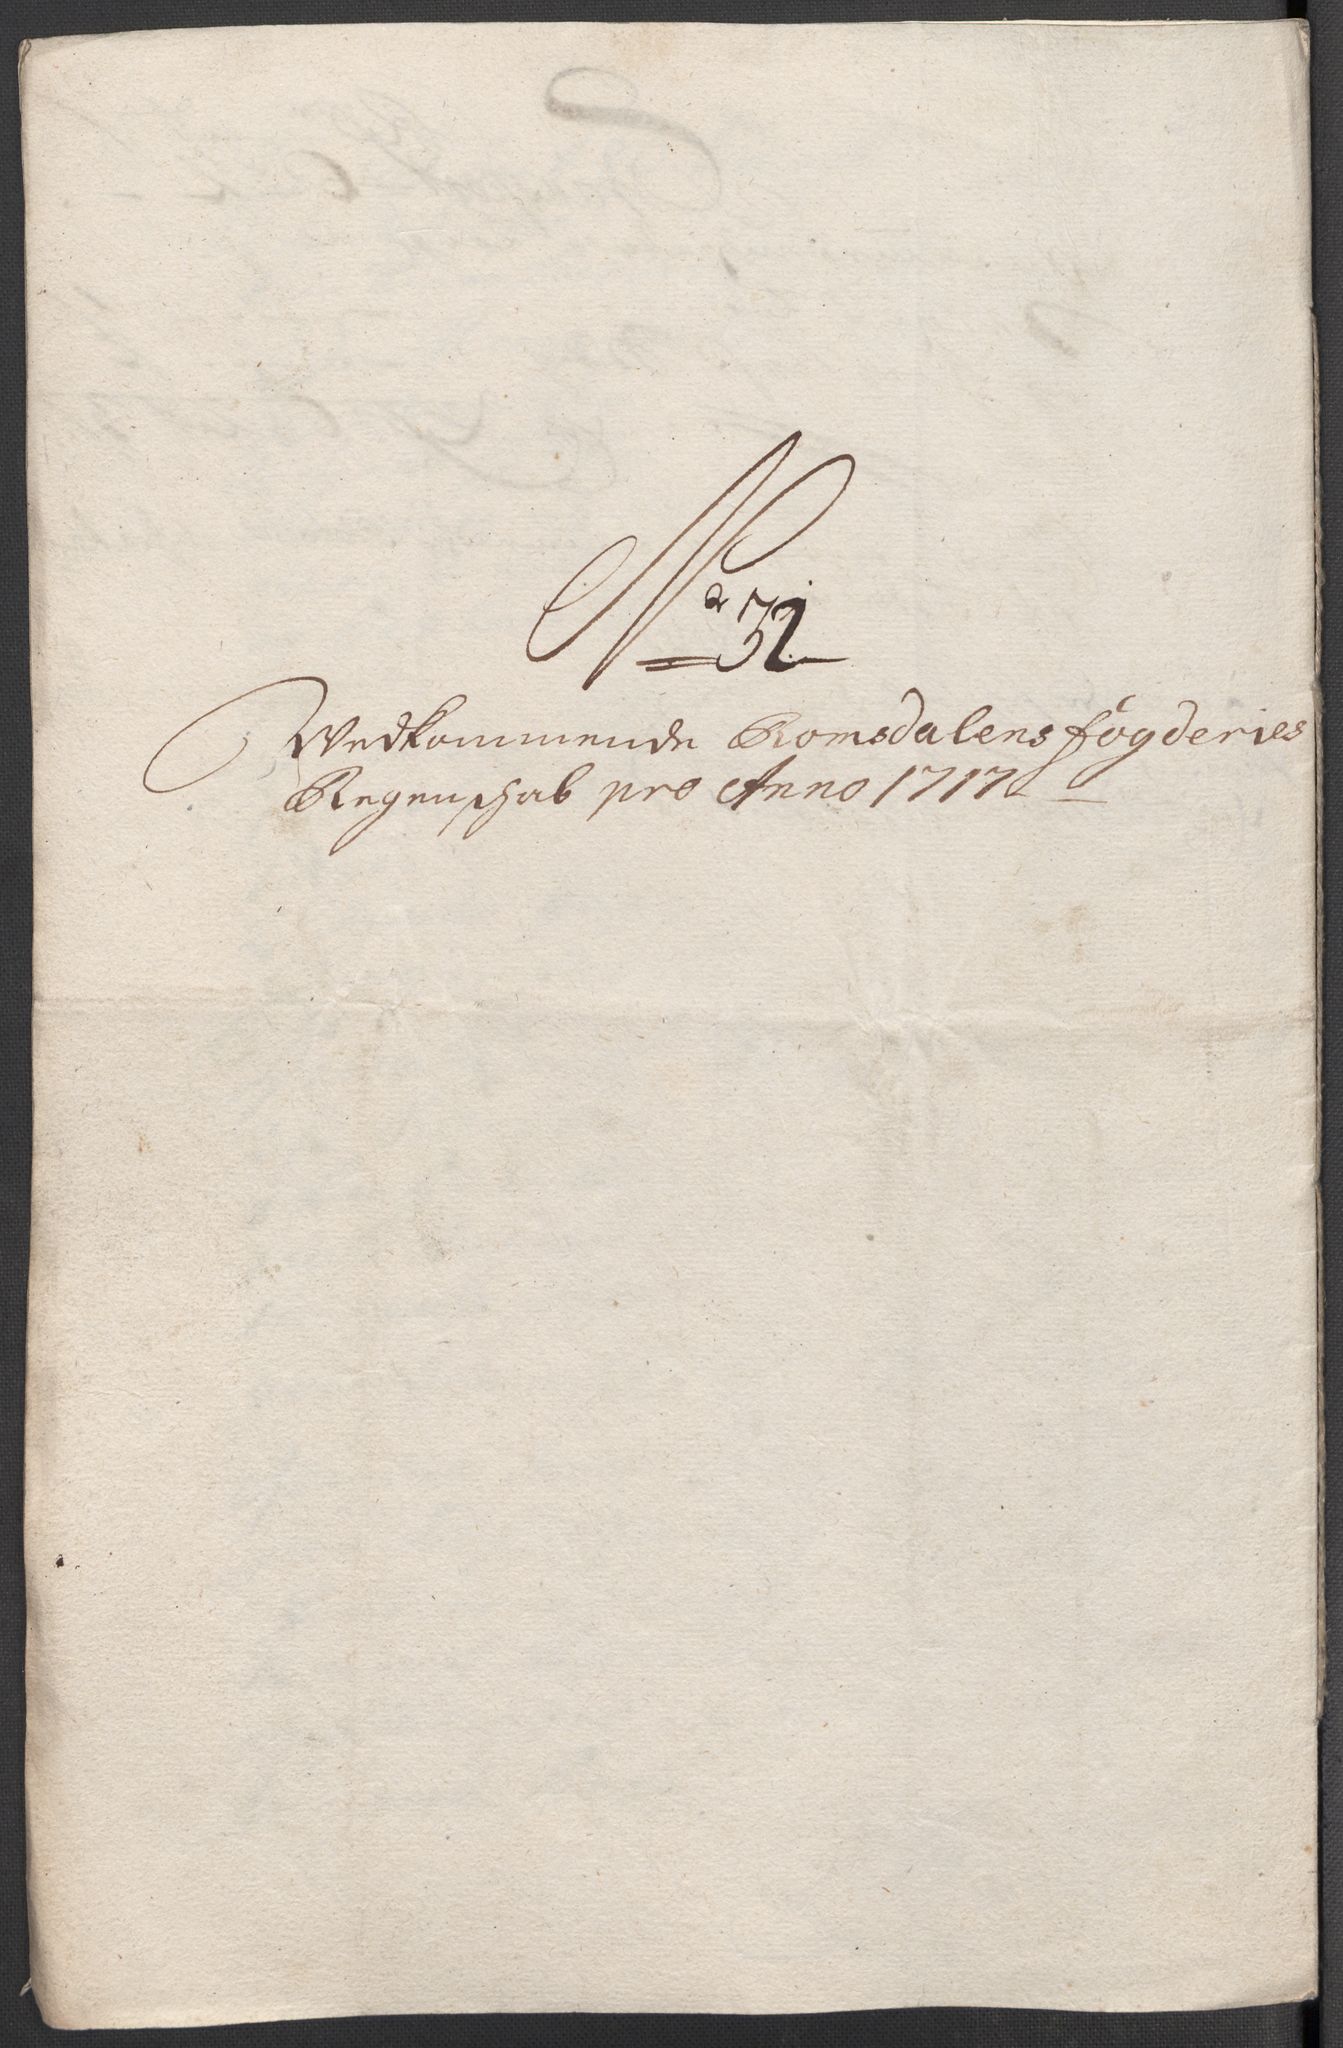 No 32
Vedkommende Romsdalens fögderies
Regenschab pro Anno 1717